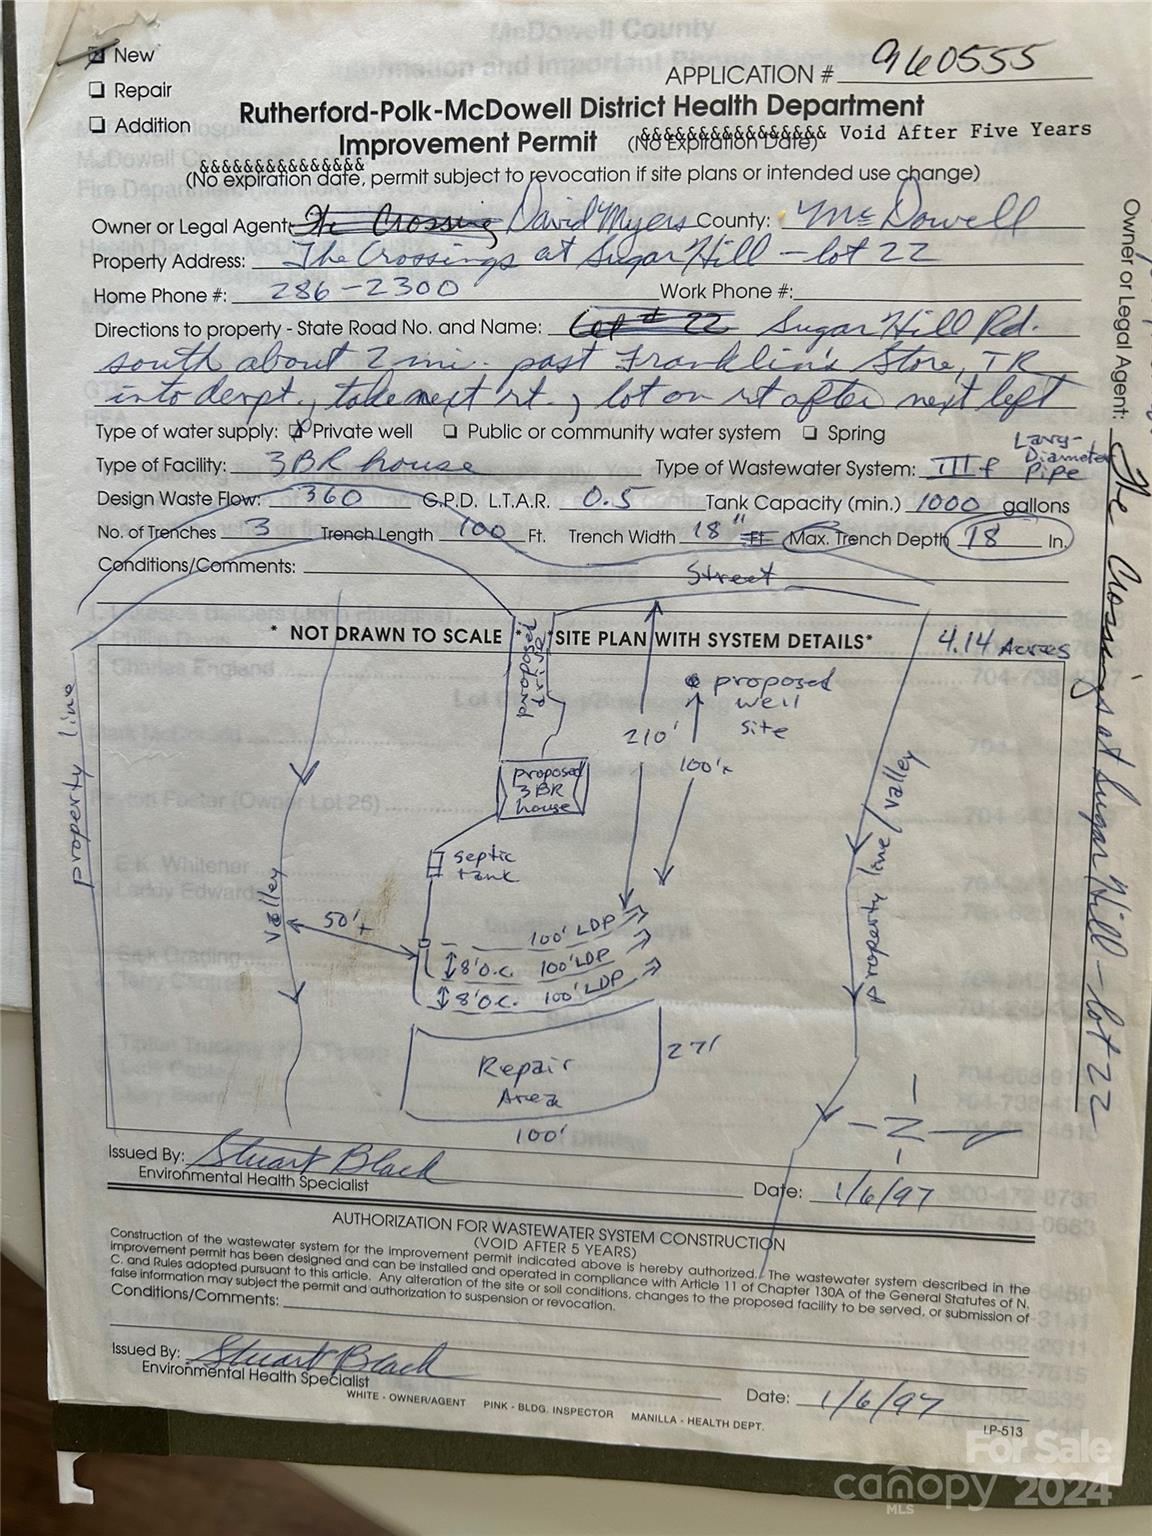 New
APPLICATION # 960555
Repair
Rutherford-Polk-McDowell District Health Department
Addition
Improvement Permit (No Expiration Date) Void After Five Years
&&&&&&&&&&&&&&&&
(No expiration date, permit subject to revocation if site plans or intended use change)
Owner or Legal Agent: The Crossing David Myers County: McDowell
Property Address: The Crossings at Sugar Hill - lot 22
Home Phone #: 286-2300 Work Phone #:
Directions to property - State Road No. and Name: Lot # 22 Sugar Hill Rd.
south about 2 mi. past Franklin's Store, TR
into devpt., take next rt., lot on rt after next left
Type of water supply: Private well Public or community water system Spring
Type of Facility: 3BR house Type of Wastewater System: III f Large-Diameter Pipe
Design Waste Flow: 360 G.P.D. L.T.A.R. 0.5 Tank Capacity (min.) 1000 gallons
No. of Trenches 3 Trench Length 100 Ft. Trench Width 18" Ft. Max. Trench Depth 18 In.
Conditions/Comments:
Street
* NOT DRAWN TO SCALE * *SITE PLAN WITH SYSTEM DETAILS*
4.14 Acres
proposed drive
property line
proposed
well
site
210'
100'+
proposed
3BR
house
property line/valley
septic
tank
valley
50'+
100' LDP
8' O.C. 100' LDP
8' O.C. 100' LDP
27'
Repair
Area
100'
N
Issued By: Stuart Black
Environmental Health Specialist
Date: 1/6/97
AUTHORIZATION FOR WASTEWATER SYSTEM CONSTRUCTION
(VOID AFTER 5 YEARS)
Construction of the wastewater system for the improvement permit indicated above is hereby authorized. The wastewater system described in the
improvement permit has been designed and can be installed and operated in compliance with Article 11 of Chapter 130A of the General Statutes of N.
C. and Rules adopted pursuant to this article. Any alteration of the site or soil conditions, changes to the proposed facility to be served, or submission of
false information may subject the permit and authorization to suspension or revocation.
Conditions/Comments:
Issued By: Stuart Black
Environmental Health Specialist
Date: 1/6/97
WHITE - OWNER/AGENT PINK - BLDG. INSPECTOR MANILLA - HEALTH DEPT.
LP-513
Owner or Legal Agent: The Crossings at Sugar Hill - lot 22
For Sale
canopy 2024
MLS